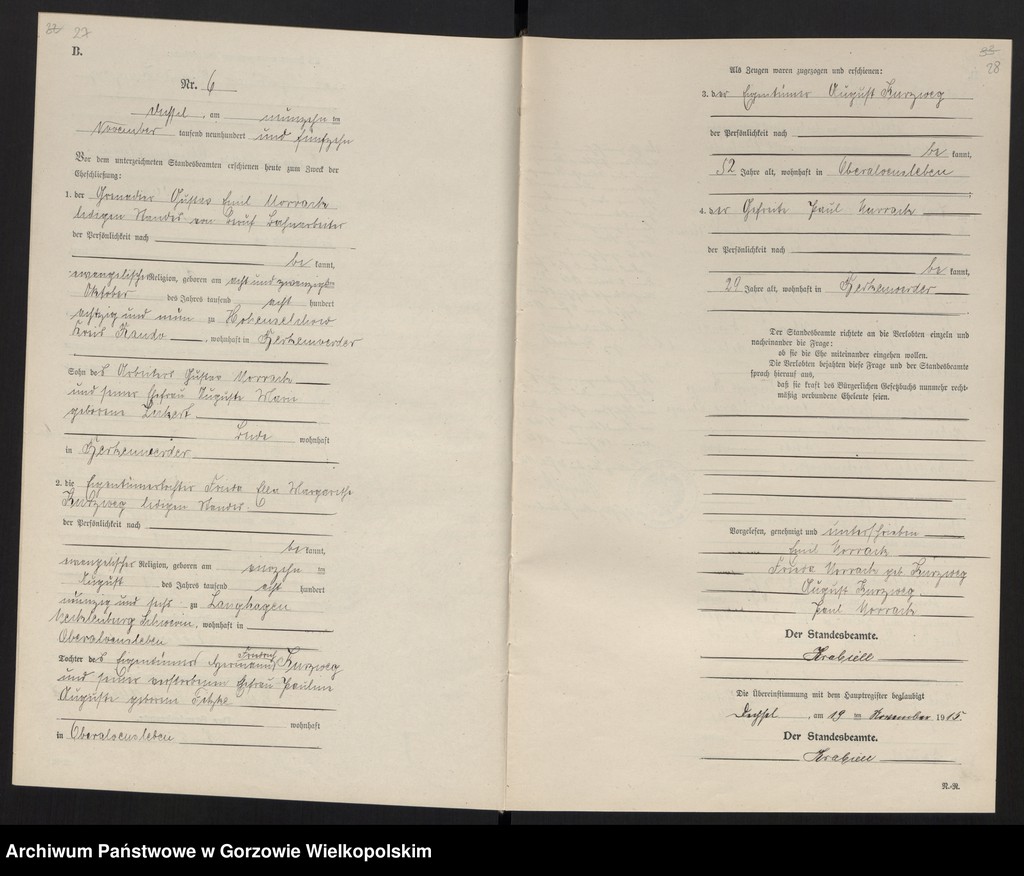 32 27
B.
Nr. 6
Dechsel, am neunzehn ten
November tausend neunhundert und fünfzehn
Vor dem unterzeichneten Standesbeamten erschienen heute zum Zweck der
Eheschließung:
1. der Grenadier Gustav Emil Vorrach
ledigen Standes von Beruf Bahnarbeiter
der Persönlichkeit nach
be kannt,
evangelischer Religion, geboren am acht und zwanzigsten
Oktober des Jahres tausend acht hundert
achtzig und neun zu Hohenselchow
Kreis Randow, wohnhaft in
Sohn des Arbeiters Gustav Vorrach
und seiner Ehefrau Auguste
geborene
beide wohnhaft
in
2. die Eigentümertochter Frieda Ella Margarethe
Kurzweg ledigen Standes
der Persönlichkeit nach
be kannt,
evangelischer Religion, geboren am vierzehn ten
August des Jahres tausend acht hundert
neunzig und sechs zu Langhagen
Mecklenburg Schwerin, wohnhaft in
Oberalvensleben
Tochter des Eigentümers Hermann Friedrich Kurzweg
und seiner verstorbenen Ehefrau Pauline
Auguste geborene
wohnhaft
in Oberalvensleben
32
28
Als Zeugen waren zugezogen und erschienen:
3. der Eigentümer August Kurzweg
der Persönlichkeit nach
be kannt,
52 Jahre alt, wohnhaft in Oberalvensleben
4. der Gefreite Paul Vorrach
der Persönlichkeit nach
be kannt,
29 Jahre alt, wohnhaft in
Der Standesbeamte richtete an die Verlobten einzeln und
nacheinander die Frage:
ob sie die Ehe miteinander eingehen wollen.
Die Verlobten bejahten diese Frage und der Standesbeamte
sprach hierauf aus,
daß sie kraft des Bürgerlichen Gesetzbuchs nunmehr recht-
mäßig verbundene Eheleute seien.
Vorgelesen, genehmigt und unterschrieben
Emil Vorrach
Frieda Vorrach geb. Kurzweg
August Kurzweg
Paul Vorrach
Der Standesbeamte.
Krabiell
Die Übereinstimmung mit dem Hauptregister beglaubigt
Dechsel, am 19 ten November 1915.
Der Standesbeamte.
Krabiell
N.-R.
Archiwum Państwowe w Gorzowie Wielkopolskim